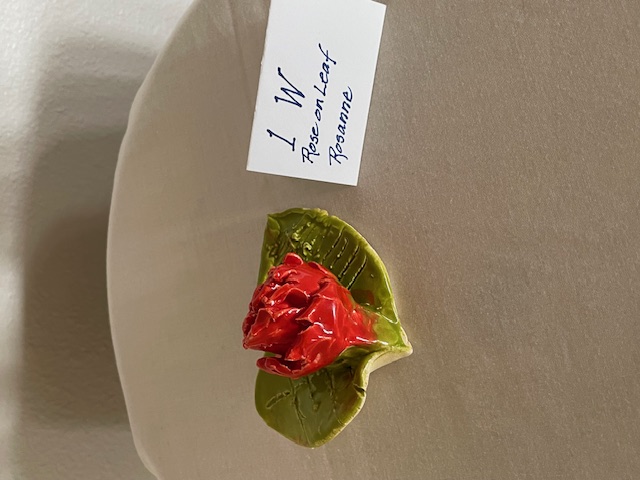 1 W
Rose on Leaf
Rosanne